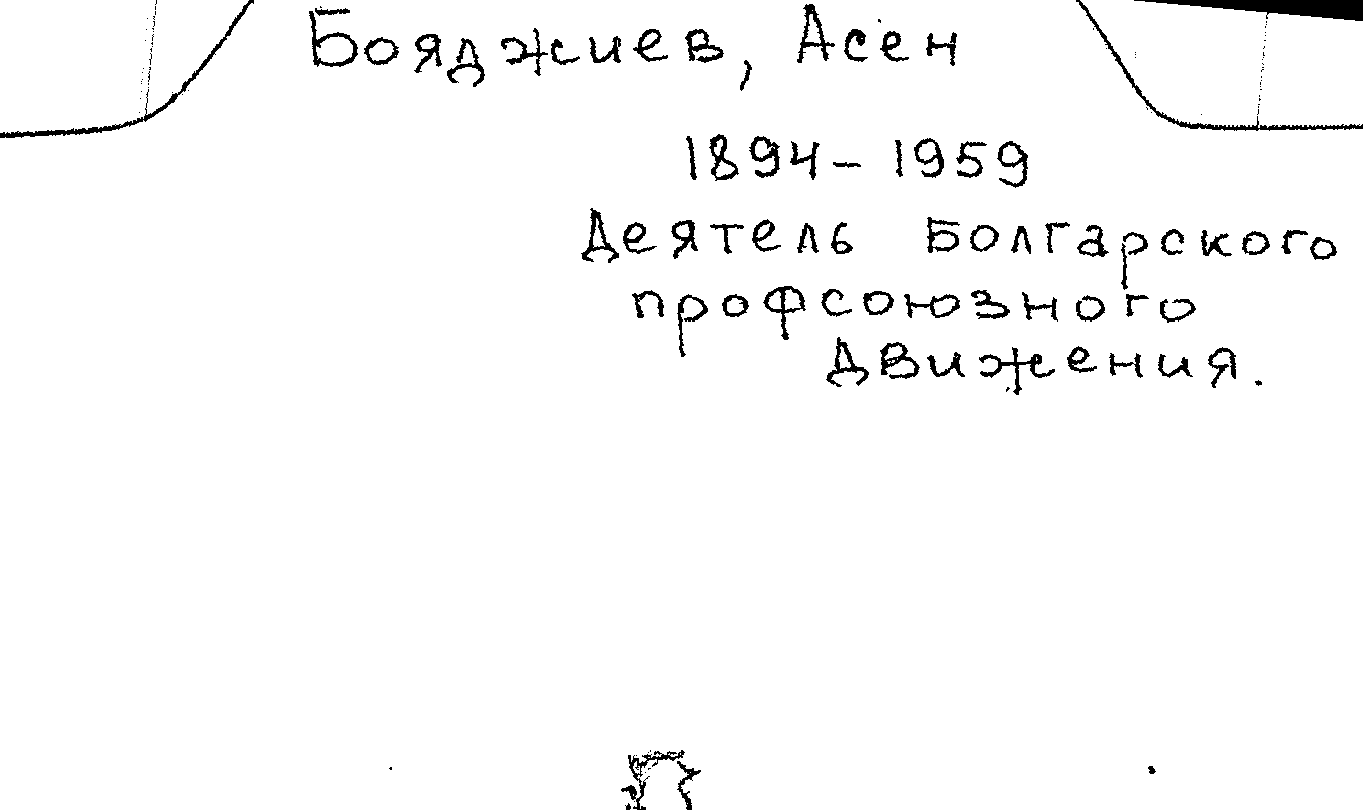 Бояджиев, Асен
1894 – 1959
Деятель Болгарского
профсоюзного
движения.